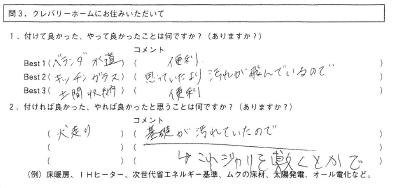 問3．クレバリーホームにお住まいいただいて
1．付けて良かった、やって良かったことは何ですか？（ありますか？）
コメント
Best1（ベランダ水道）（便利）
Best2（キッチンガラス）（思っていたより汚れが飛んでいるので）
Best3（土間収納）（便利）
2．付ければ良かった、やれば良かったと思うことは何ですか？（ありますか？）
コメント
（犬走り）（基礎が汚れていたので）
（ ）（↳これジャリを敷くとかで）
（ ）（ ）
（例）床暖房、IHヒーター、次世代省エネルギー基準、ムクの床材、太陽発電、オール電化など。